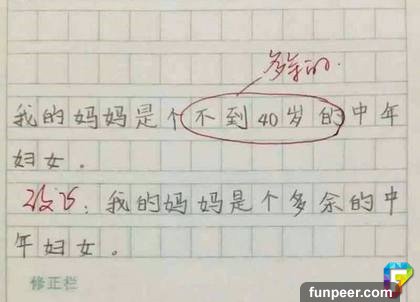 多余的.
我的妈妈是个不到40岁的中年
妇女.
改正:我的妈妈是个多余的中
年妇女。
修正栏
funpeer.com